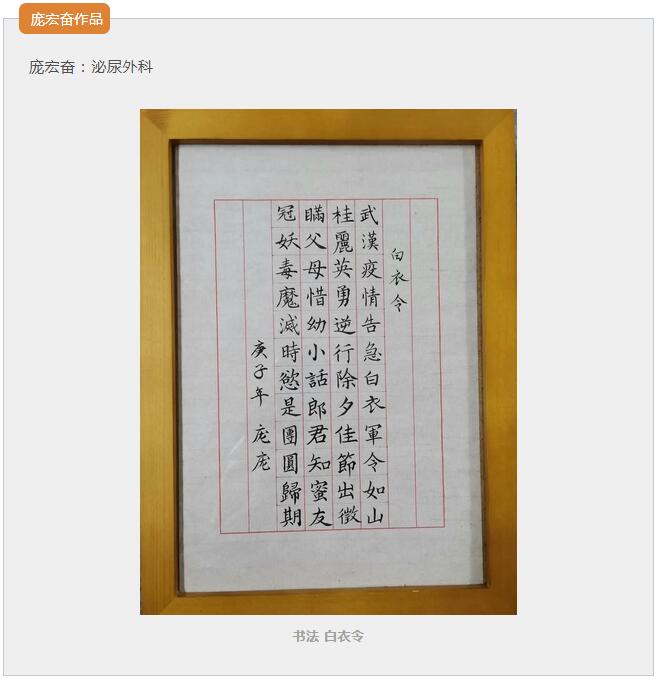 庞宏奋作品
庞宏奋：泌尿外科
白衣令
武漢疫情告急白衣軍令如山
桂麗英勇逆行除夕佳節出徵
瞞父母惜幼小話郎君知蜜友
冠妖毒魔滅時慾是團圓歸期
庚子年 庞庞
书法 白衣令